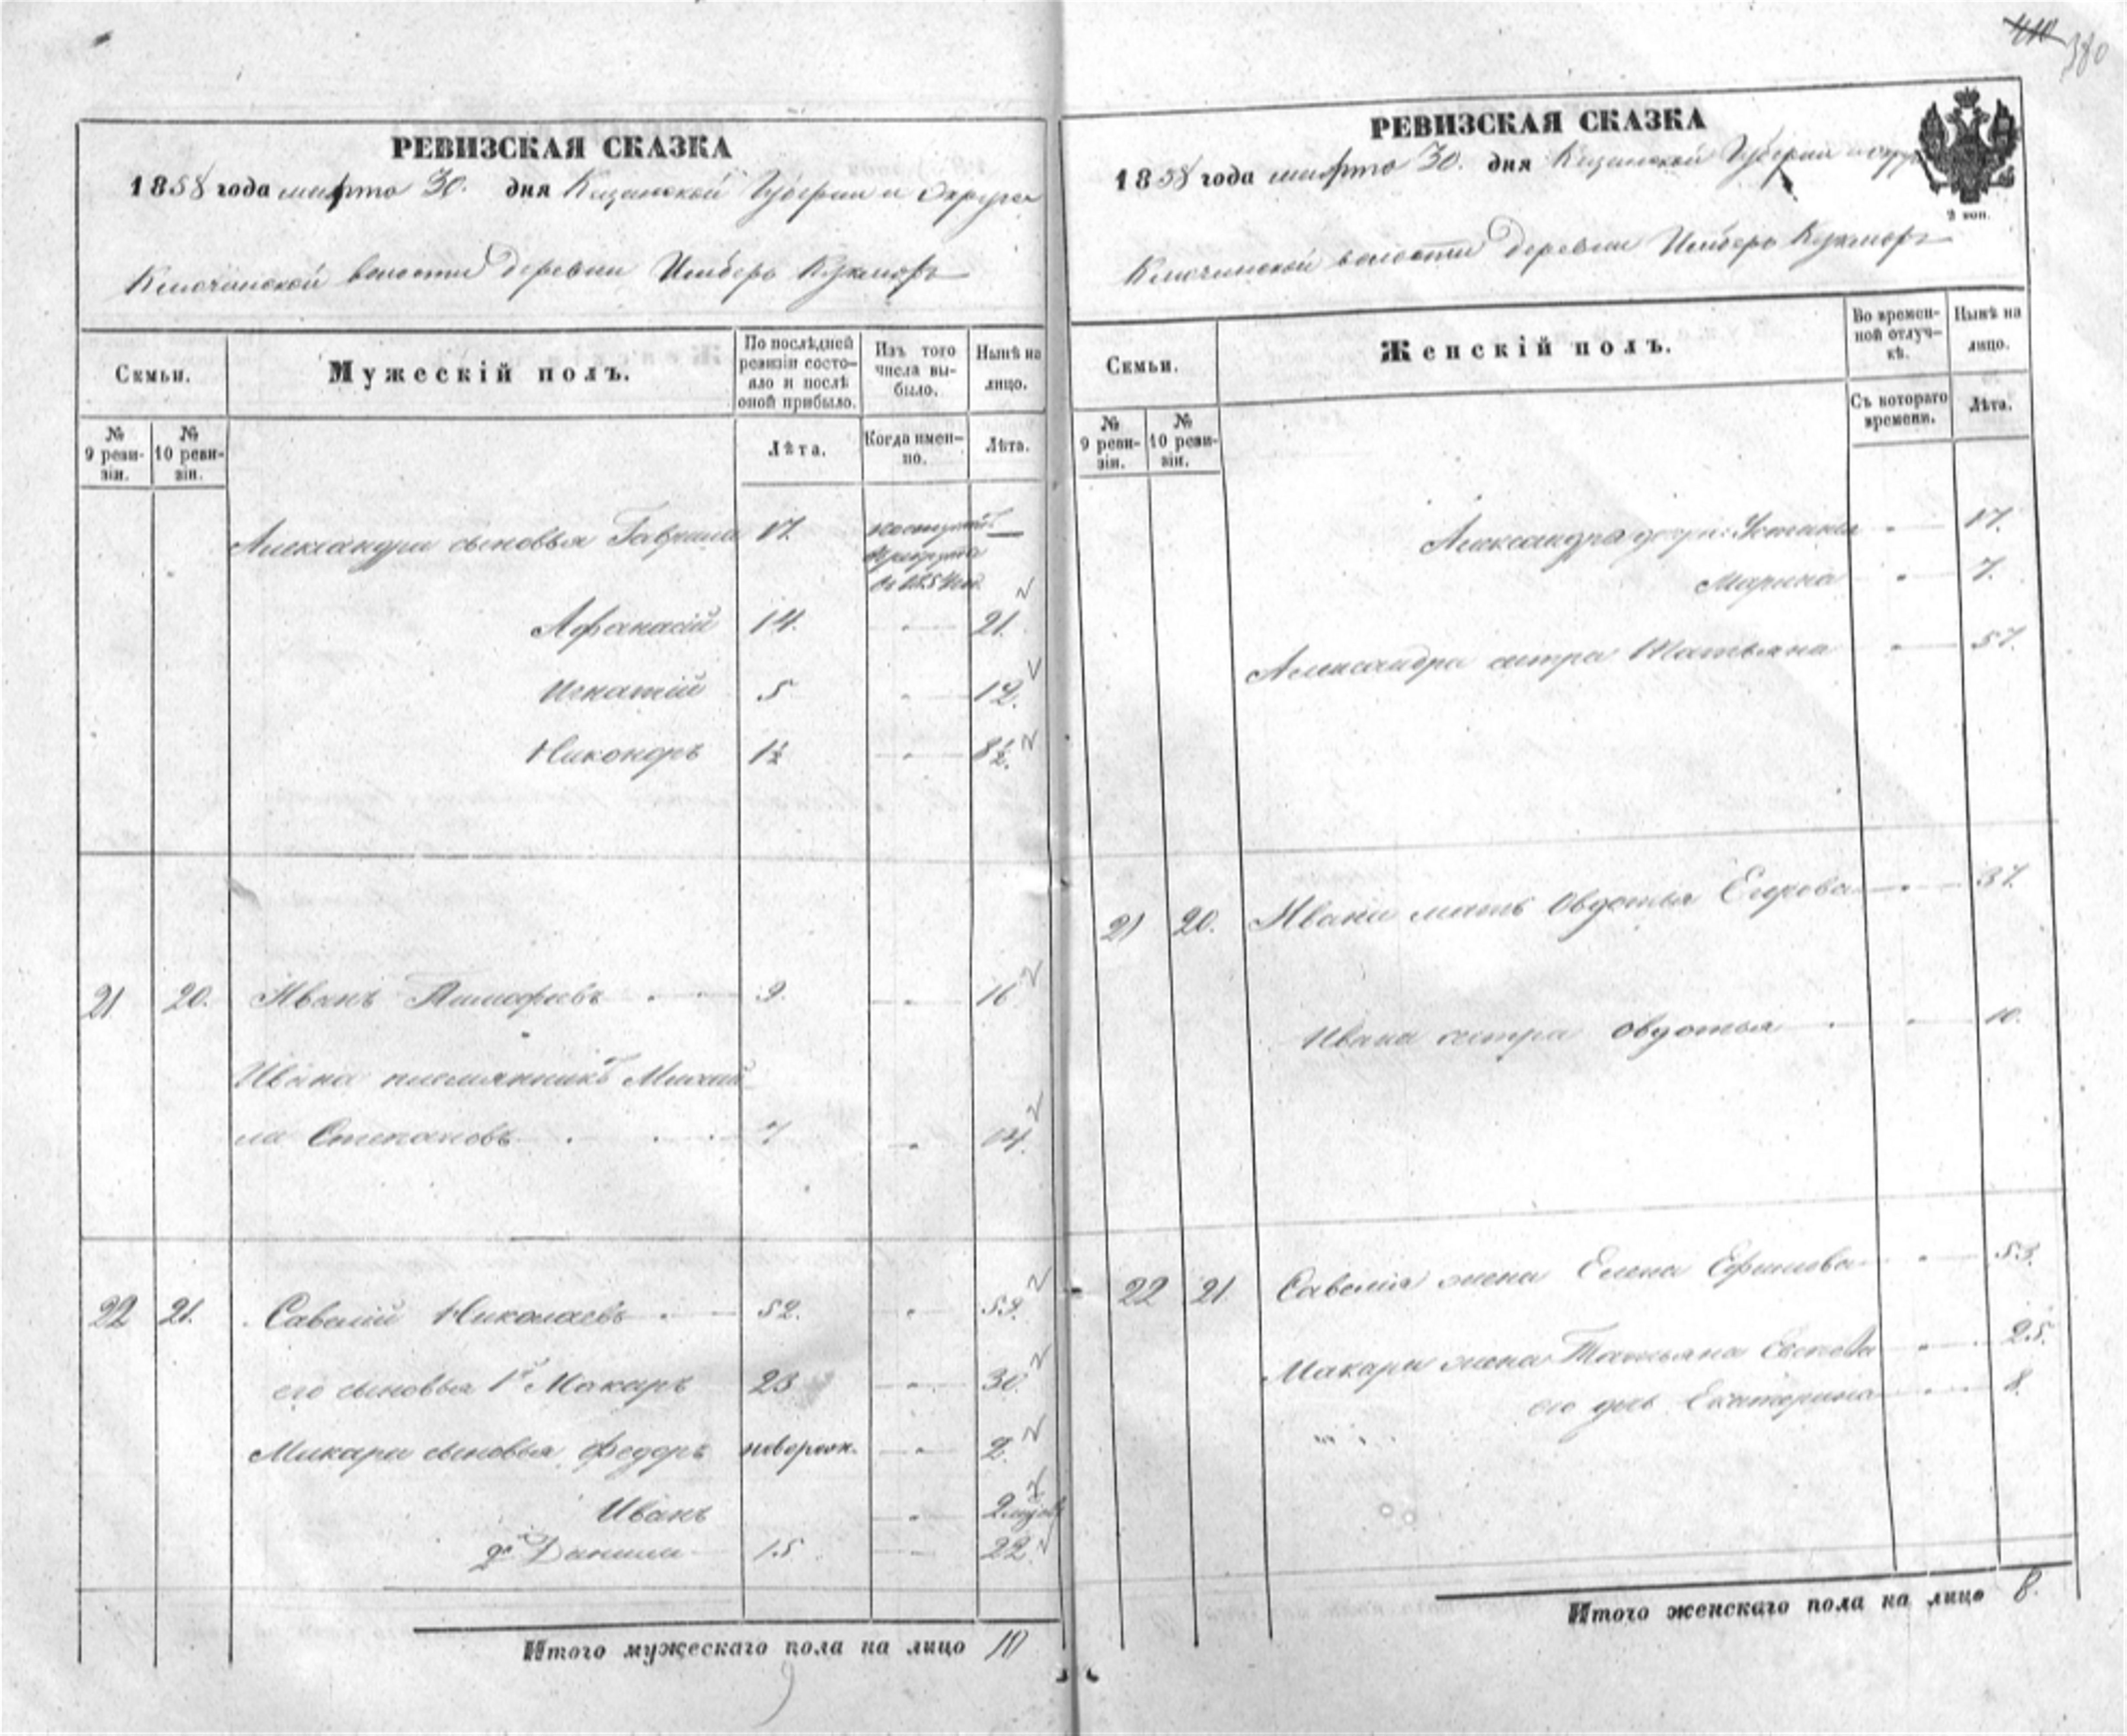 380
РЕВИЗСКАЯ СКАЗКА
1858 года марта 30. дня Казанской Губернии и Округа
Ключинской волости деревни Кукмора
Семьи.
Мужескій полъ.
По послѣдней ревизіи состояло и послѣ оной прибыло.
Изъ того числа выбыло.
Нынѣ на лицо.
№ 9 ревизіи.
№ 10 ревизіи.
Лѣта.
Когда именно.
Лѣта.
Александра сыновья Гаврила 17.
Афанасій 14. 21.
Игнатій 5 12.
Никоноръ 1½ 8½.
21 20. Иванъ Тимофеевъ 9. 16
Ивана племянникъ Михай
ла Степановъ 7 14.
22 21. Савелій Николаевъ 52. 59.
его сыновья 1й Макаръ 23 30.
Макара сыновья Федоръ новорож. 2.
Иванъ 2
2й Данила 15 22.
Итого мужескаго пола на лицо 10
РЕВИЗСКАЯ СКАЗКА
1858 года марта 30. дня Казанской Губерніи и
2 коп.
Ключинской волости деревни Кукмора
Семьи.
Женскій полъ.
Во временной отлучкѣ.
Нынѣ на лицо.
№ 9 ревизіи.
№ 10 ревизіи.
Съ котораго времени.
Лѣта.
Александра дочери: Устинья 17.
Марина 7.
Александра сестра Татьяна 57.
21 20. Ивана мать Овдотья Егорова 37.
Ивана сестра Овдотья 10.
22 21 Савелія жена Елена Ефимова 53.
Макара жена Татьяна 25.
его дчь Екатерина 8.
Итого женскаго пола на лицо 8.